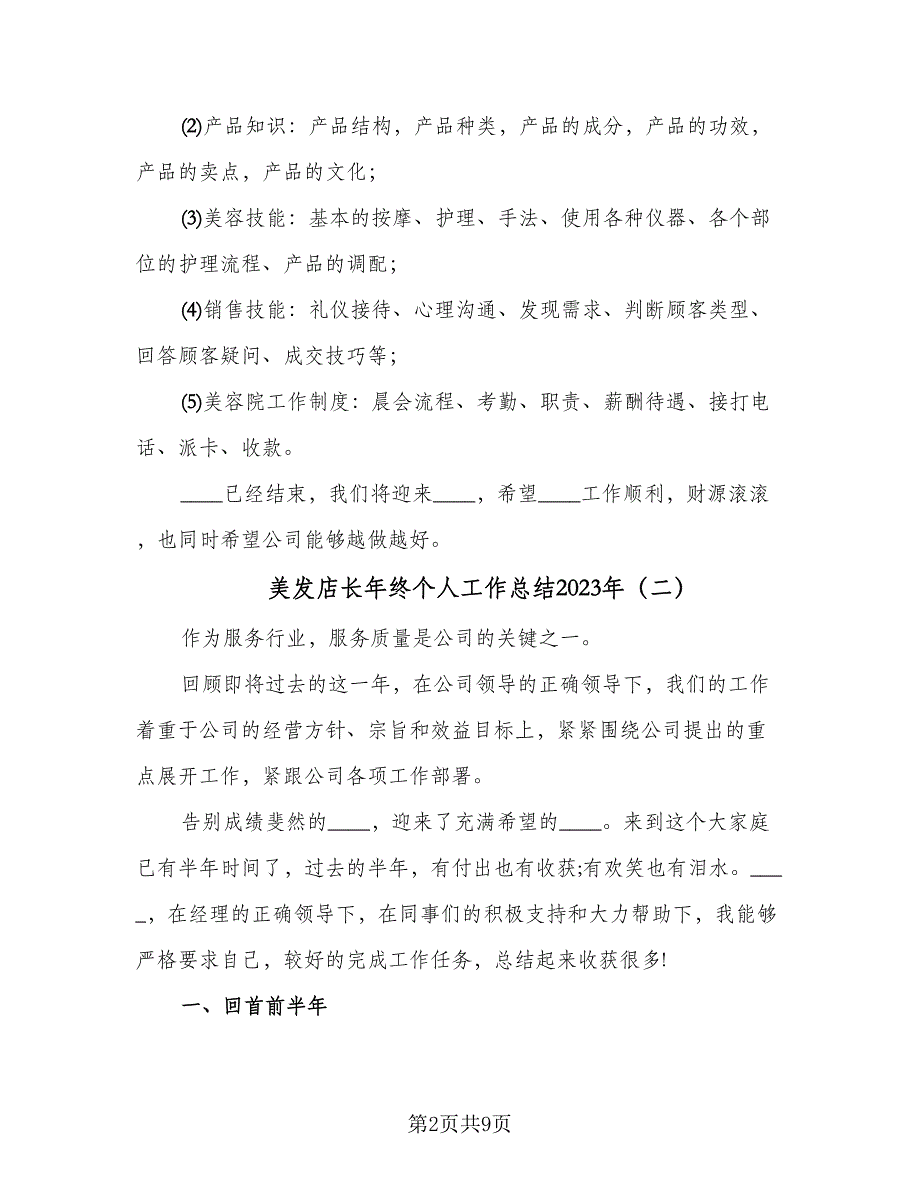 ⑵产品知识：产品结构，产品种类，产品的成分，产品的功效，
产品的卖点，产品的文化；
⑶美容技能：基本的按摩、护理、手法、使用各种仪器、各个部
位的护理流程、产品的调配；
⑷销售技能：礼仪接待、心理沟通、发现需求、判断顾客类型、
回答顾客疑问、成交技巧等；
⑸美容院工作制度：晨会流程、考勤、职责、薪酬待遇、接打电
话、派卡、收款。
____已经结束，我们将迎来____，希望____工作顺利，财源滚滚
，也同时希望公司能够越做越好。
美发店长年终个人工作总结2023年（二）
作为服务行业，服务质量是公司的关键之一。
回顾即将过去的这一年，在公司领导的正确领导下，我们的工作
着重于公司的经营方针、宗旨和效益目标上，紧紧围绕公司提出的重
点展开工作，紧跟公司各项工作部署。
告别成绩斐然的____，迎来了充满希望的____。来到这个大家庭
已有半年时间了，过去的半年，有付出也有收获;有欢笑也有泪水。___
_，在经理的正确领导下，在同事们的积极支持和大力帮助下，我能够
严格要求自己，较好的完成工作任务，总结起来收获很多!
一、回首前半年
第2页共9页